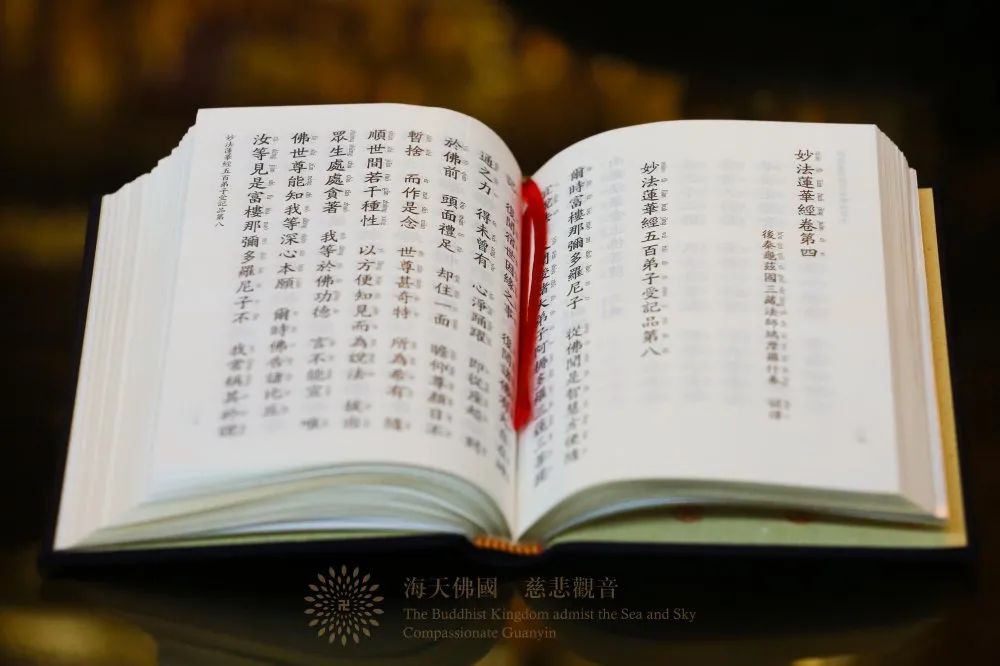 妙法蓮華經卷第四
後秦龜茲國三藏法師鳩摩羅什奉 詔譯
妙法蓮華經五百弟子受記品第八
爾時富樓那彌多羅尼子 從佛聞是智慧方便隨
諸大弟子阿耨多羅 三藐三菩提
復聞宿世因緣之事 復聞諸佛
通之力 得未曾有 心淨踊躍 即從座起 到
於佛前 頭面禮足 却住一面 瞻仰尊顏目不
暫捨 而作是念 世尊甚奇特 所為希有 隨
順世間若干種性 以方便知見而為說法 拔出
眾生處處貪著 我等於佛功德 言不能宣 唯
佛世尊能知我等深心本願 爾時佛告諸比丘
汝等見是富樓那彌多羅尼子不 我常稱其於說
妙法蓮華經五百弟子受記品第八
海天佛國 慈悲觀音
The Buddhist Kingdom admist the Sea and Sky
Compassionate Guanyin